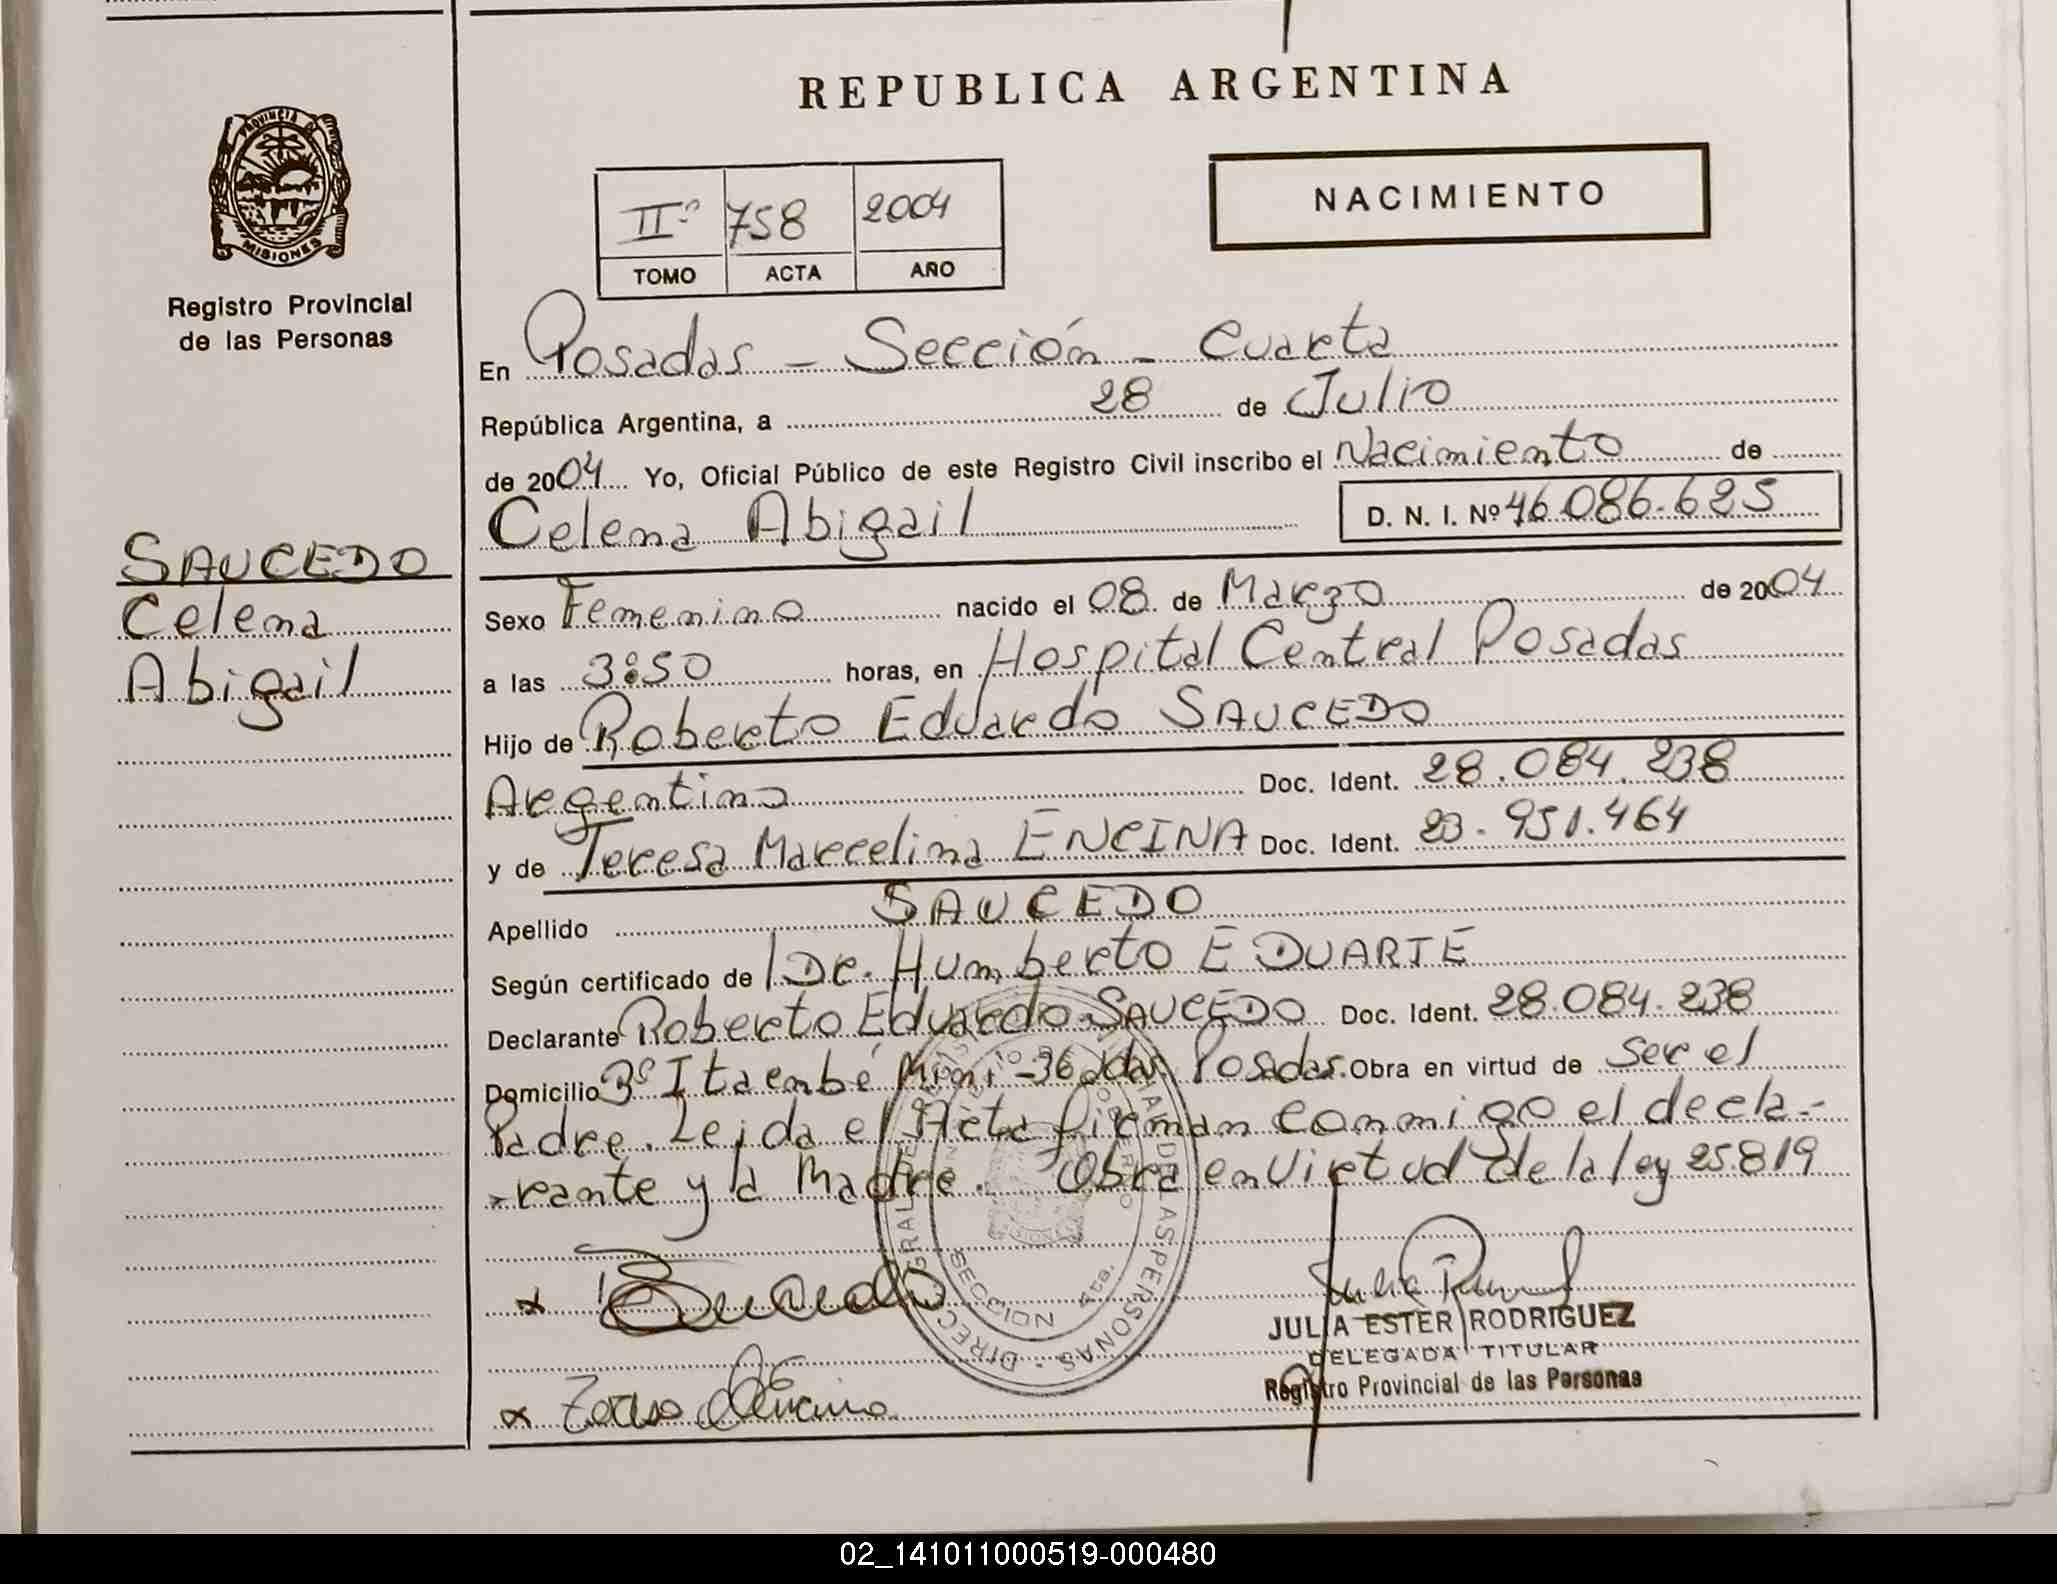 REPUBLICA ARGENTINA
PROVINCIA DE
MISIONES
Registro Provincial
de las Personas
IIº 758 2004
TOMO ACTA AÑO
NACIMIENTO
En Posadas - Sección - Cuarta
República Argentina, a 28 de Julio
de 2004 Yo, Oficial Público de este Registro Civil inscribo el Nacimiento de
Celena Abigail D. N. I. Nº 46.086.625
SAUCEDO
Celena
Abigail
Sexo Femenino nacido el 08 de Marzo de 2004
a las 3:50 horas, en Hospital Central Posadas
Hijo de Roberto Eduardo SAUCEDO
Argentino Doc. Ident. 28.084.238
y de Teresa Marcelina ENCINA Doc. Ident. 23.951.464
Apellido SAUCEDO
Según certificado de Dr. Humberto E DUARTE
Declarante Roberto Eduardo SAUCEDO Doc. Ident. 28.084.238
Domicilio Bº Itaembé Mini - 36 Posadas. Obra en virtud de ser el
Padre. Leida el Acta firman conmigo el decla-
-rante y la Madre. Obra en Virtud de la ley 25.819
SECCION 4ta.
JULIA ESTER RODRIGUEZ
DELEGADA TITULAR
Registro Provincial de las Personas
02_141011000519-000480